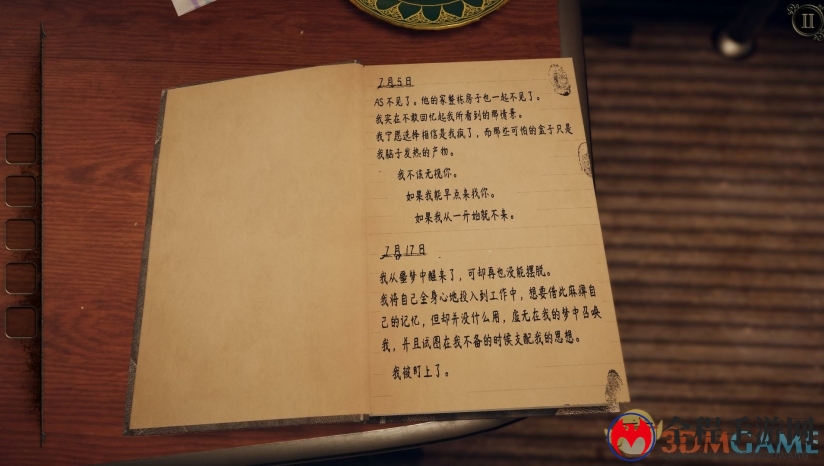 II
7月5日
AS不见了。他的家整栋房子也一起不见了。
我实在不敢回忆起我所看到的那情景。
我宁愿选择相信是我疯了，而那些可怕的盒子只是
我脑子发热的产物。
我不该无视你。
如果我能早点来找你。
如果我从一开始就不来。
7月17日
我从噩梦中醒来了，可却再也没能摆脱。
我将自己全身心地投入到工作中，想要借此麻痹自
己的记忆，但却并没什么用，虚无在我的梦中召唤
我，并且试图在我不备的时候支配我的思想。
我被盯上了。
3DMGAME